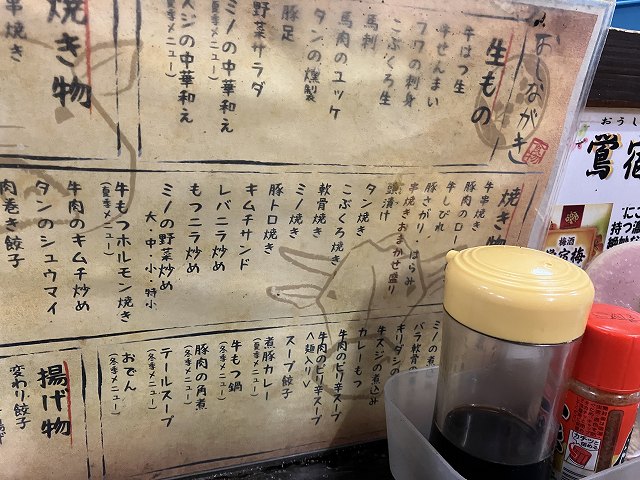 おしながき
生もの
牛はつ生
牛せんまい
フワの刺身
こぶくろ生
馬刺
馬肉のユッケ
タンの燻製
豚足
野菜サラダ
ミノの中華和え
(夏季メニュー)
スジの中華和え
(夏季メニュー)
焼き物
串焼き
焼き物
牛串焼き
豚肉のロー
牛しびれ
豚さがり、はらみ
串焼きおまかせ盛り
味噌漬け
タン焼き
こぶくろ焼き
軟骨焼き
ミノ焼き
豚トロ焼き
キムチサンド
レバニラ炒め
もつニラ炒め
ミノの野菜炒め
大・中・小・特小
牛もつホルモン焼き
(夏季メニュー)
牛肉のキムチ炒め
タンのシュウマイ
肉巻き餃子
ミノの煮
バラ軟骨
ギリダン
牛スジの煮込み
カレーもつ
牛肉のピリ辛スープ
牛肉のピリ辛スープ
<麺入り>
スープ餃子
煮豚カレー
(夏季メニュー)
牛もつ鍋
(冬季メニュー)
豚肉の角煮
(冬季メニュー)
テールスープ
(冬季メニュー)
おでん
(冬季メニュー)
揚げ物
変わり餃子
おうし
鶯宿
梅酒
鶯宿梅